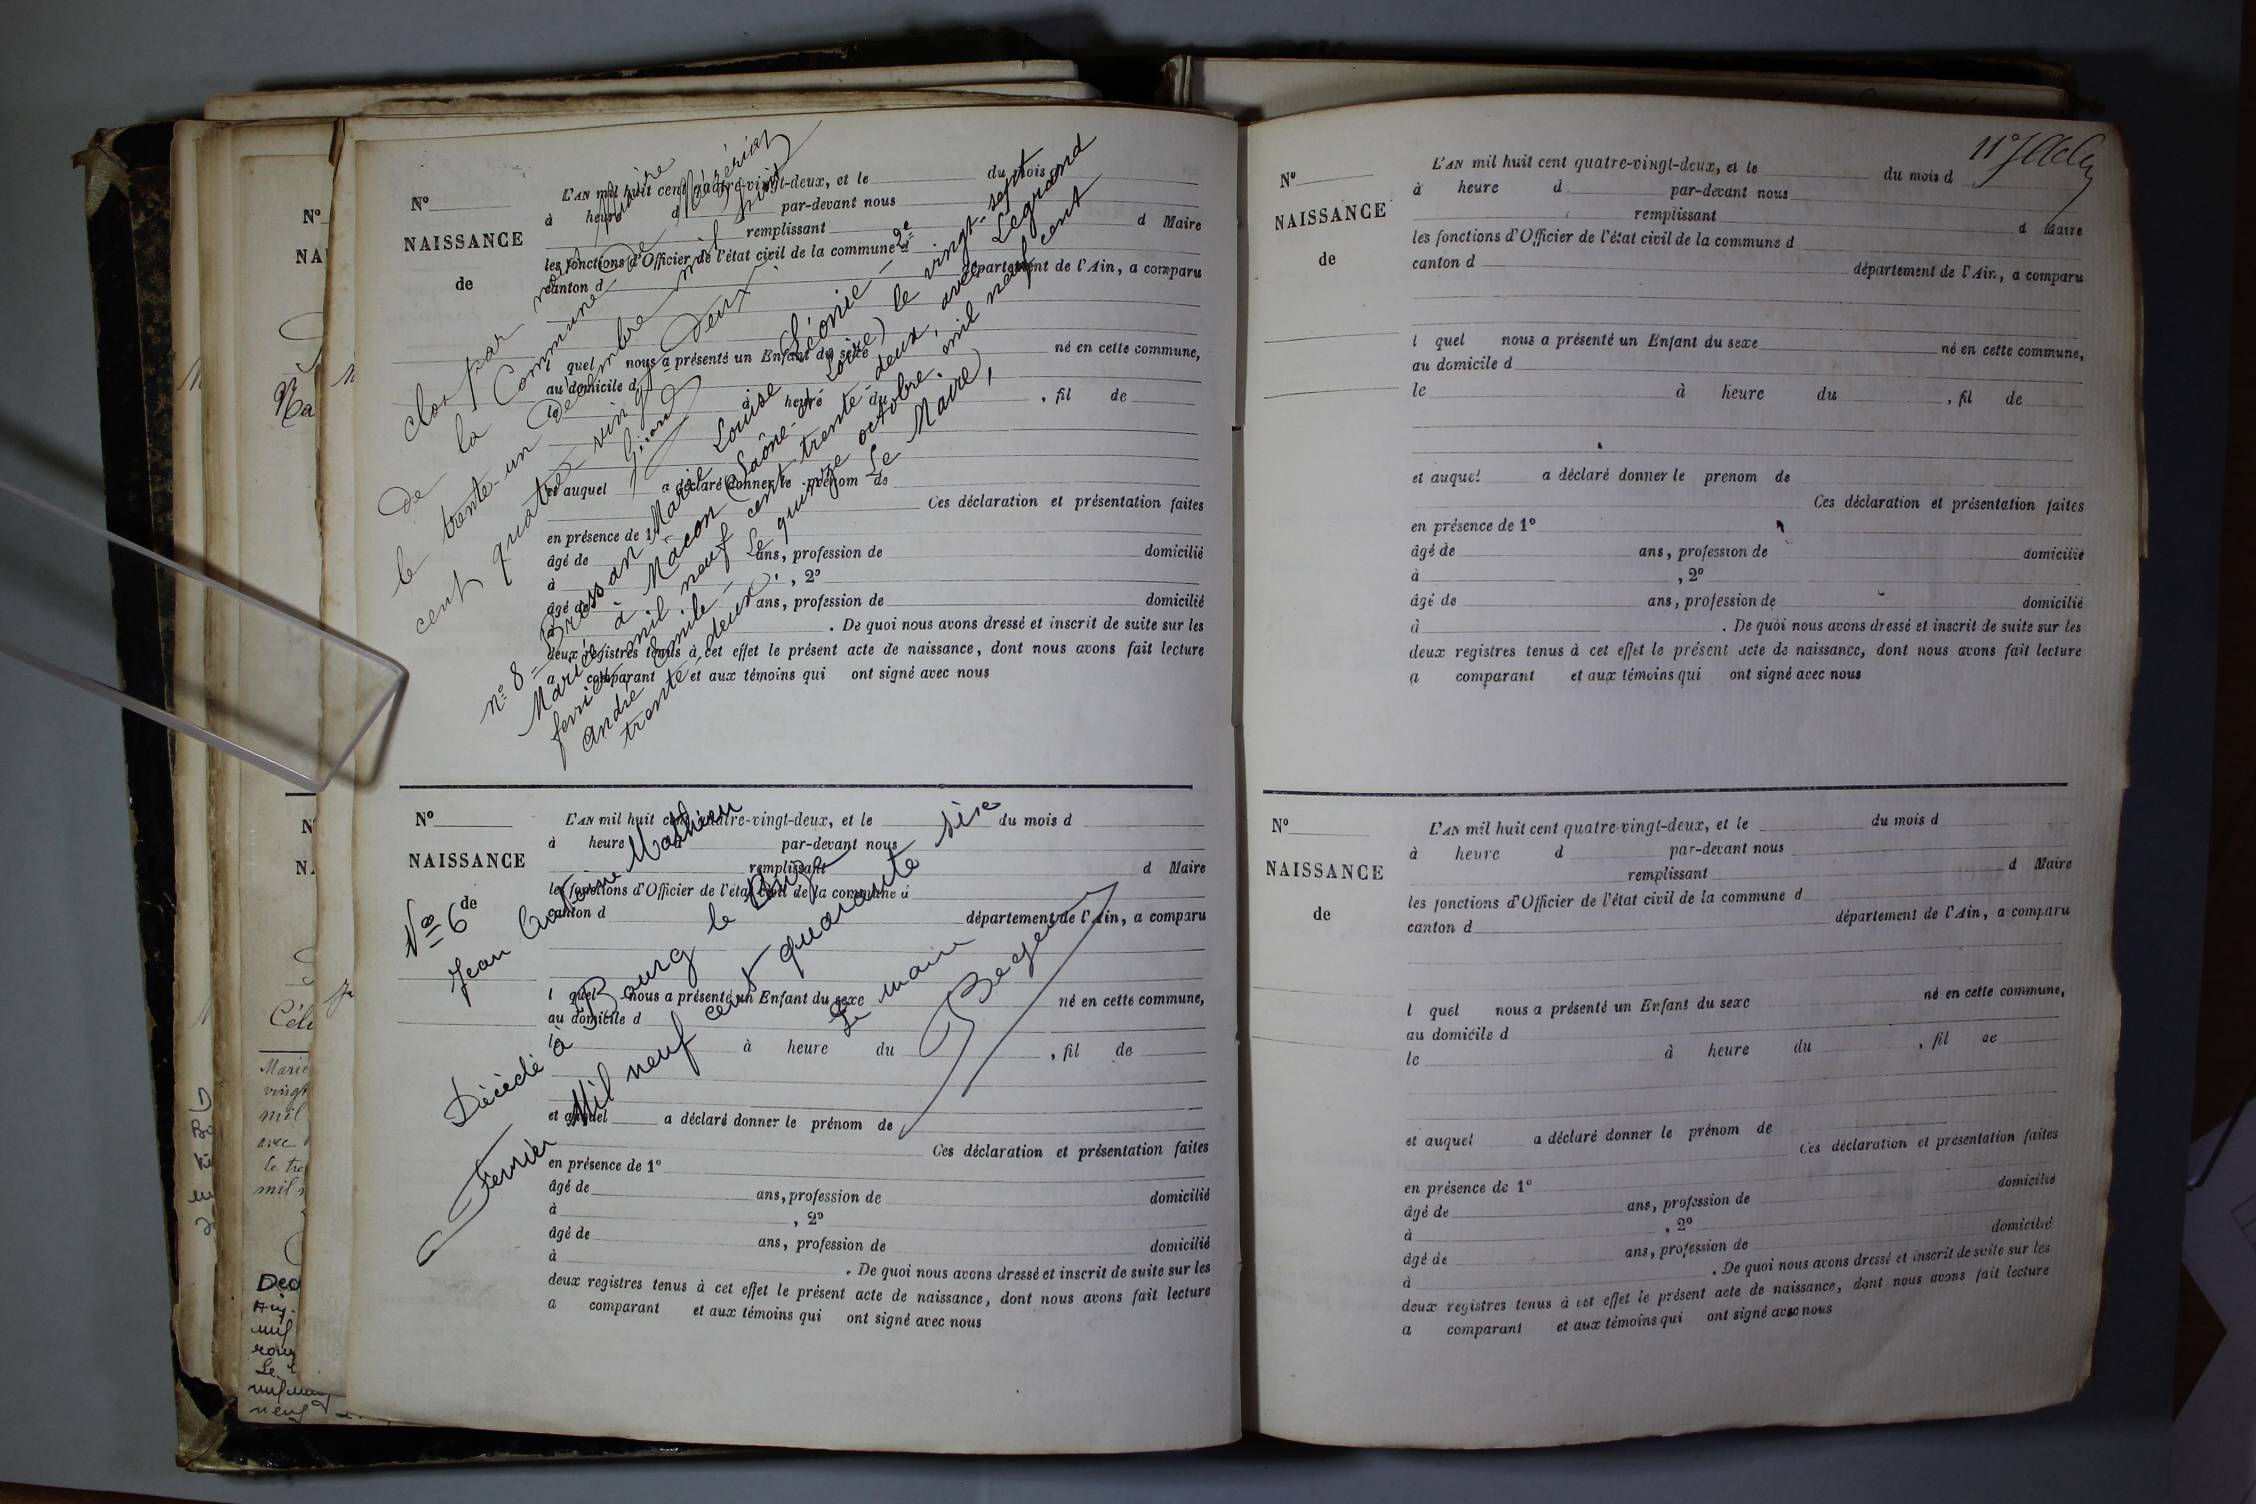 N°
NAISSANCE
de
L'AN mil huit cent quatre-vingt-deux, et le du mois d
à heure d par-devant nous
remplissant d Maire
les fonctions d'Officier de l'état civil de la commune d
canton d département de l'Ain, a comparu
l quel nous a présenté un Enfant du sexe né en cette commune,
au domicile d
le à heure du , fil de
et auquel a déclaré donner le prénom de
Ces déclaration et présentation faites
en présence de 1°
âgé de ans, profession de domicilié
à , 2°
âgé de ans, profession de domicilié
à . De quoi nous avons dressé et inscrit de suite sur les
deux registres tenus à cet effet le présent acte de naissance, dont nous avons fait lecture
a comparant et aux témoins qui ont signé avec nous
clos par nous maire
de la Commune de
le trente-un Décembre mil huit
cent quatre vingt deux
Girand
n° 8 = Bressan Marie Louise Léonie - 2e
Mariée à Mâcon (Saône-et-Loire) le vingt-sept
fevrier mil neuf cent trente deux, avec Legrand
andré Emile - Le quinze octobre mil neuf cent
trente deux. Le Maire,
N°
NAISSANCE
de
L'AN mil huit cent quatre-vingt-deux, et le du mois d
à heure d par-devant nous
remplissant d Maire
les fonctions d'Officier de l'état civil de la commune d
canton d département de l'Ain, a comparu
l quel nous a présenté un Enfant du sexe né en cette commune,
au domicile d
le à heure du , fil de
et auquel a déclaré donner le prénom de
Ces déclaration et présentation faites
en présence de 1°
âgé de ans, profession de domicilié
à , 2°
âgé de ans, profession de domicilié
à . De quoi nous avons dressé et inscrit de suite sur les
deux registres tenus à cet effet le présent acte de naissance, dont nous avons fait lecture
a comparant et aux témoins qui ont signé avec nous
No 6
Jean Antoine Mathieu
Décédé à Bourg le Douze
Fevrier Mil neuf cent quarante six
Le maire
N°
NAISSANCE
de
L'AN mil huit cent quatre-vingt-deux, et le du mois d
à heure d par-devant nous
remplissant d Maire
les fonctions d'Officier de l'état civil de la commune d
canton d département de l'Ain, a comparu
l quel nous a présenté un Enfant du sexe né en cette commune,
au domicile d
le à heure du , fil de
et auquel a déclaré donner le prenom de
Ces déclaration et présentation faites
en présence de 1°
âgé de ans, profession de domicilié
à , 2°
âgé de ans, profession de domicilié
à . De quoi nous avons dressé et inscrit de suite sur les
deux registres tenus à cet effet le présent acte de naissance, dont nous avons fait lecture
a comparant et aux témoins qui ont signé avec nous
N°
NAISSANCE
de
L'AN mil huit cent quatre-vingt-deux, et le du mois d
à heure d par-devant nous
remplissant d Maire
les fonctions d'Officier de l'état civil de la commune d
canton d département de l'Ain, a comparu
l quel nous a présenté un Enfant du sexe né en cette commune,
au domicile d
le à heure du , fil de
et auquel a déclaré donner le prénom de
Ces déclaration et présentation faites
en présence de 1°
âgé de ans, profession de domicilié
à , 2°
âgé de ans, profession de domicilié
à . De quoi nous avons dressé et inscrit de suite sur les
deux registres tenus à cet effet le présent acte de naissance, dont nous avons fait lecture
a comparant et aux témoins qui ont signé avec nous